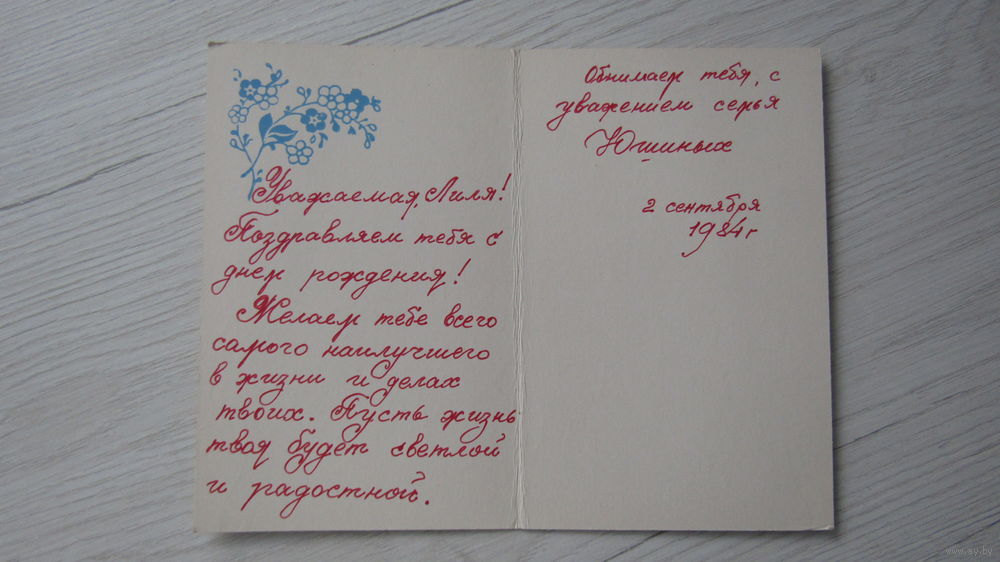 Уважаемая, Лиля!
Поздравляем тебя с
днем рождения!
Желаем тебе всего
самого наилучшего
в жизни и делах
твоих. Пусть жизнь
твоя будет светлой
и радостной.
Обнимаем тебя, с
уважением семья
Юшиных
2 сентября
1984г
www.ay.by